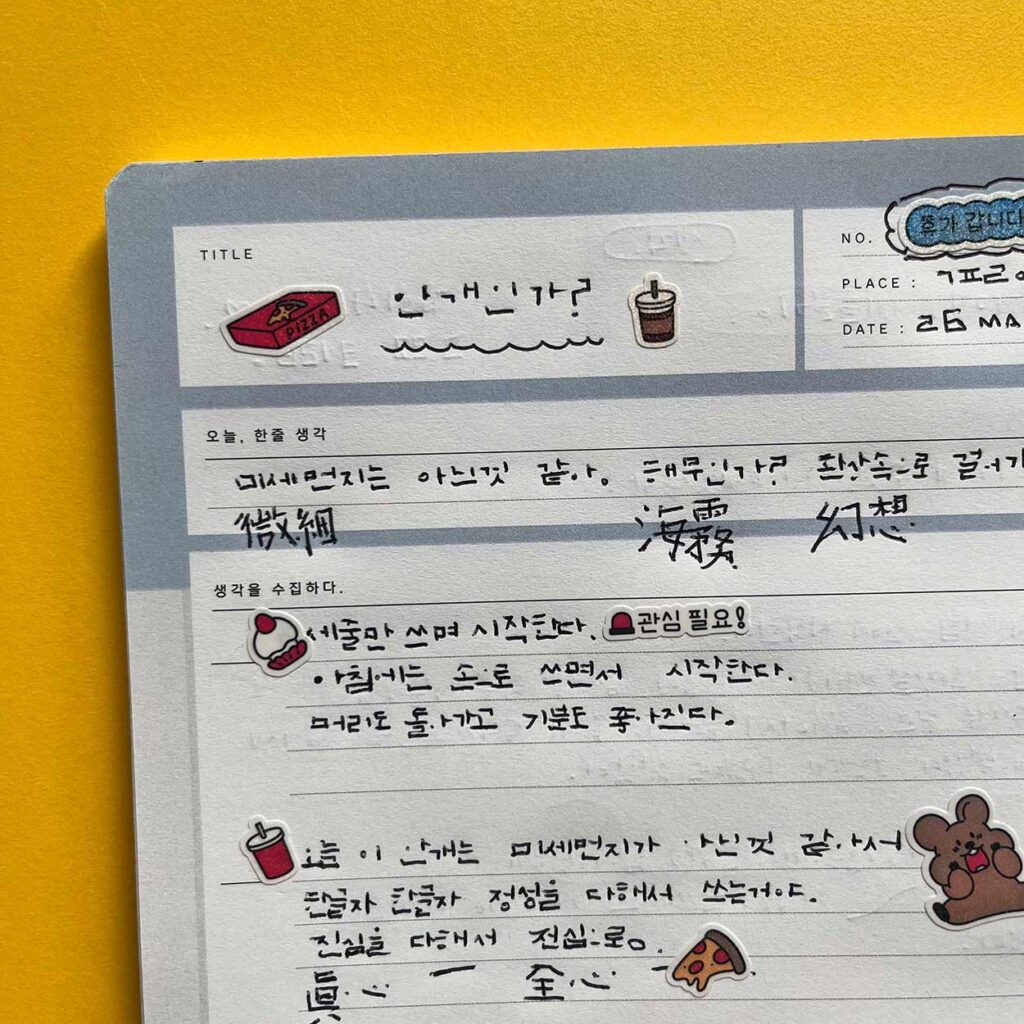 TITLE
PIZZA
안개인가?
NO.
갑니다
PLACE :
DATE : 26 MA
오늘, 한줄 생각
미세먼지는 아닌것 같아. 해무인가? 환상속으로 걸어가
微細 海霧 幻想
생각을 수집하다.
세줄만 쓰며 시작한다. 관심 필요!
아침에는 손으로 쓰면서 시작한다.
머리도 돌아가고 기분도 좋아진다.
오늘 이 안개는 미세먼지가 아닌것 같아서
한글자 한글자 정성을 다해서 쓰는거야.
진심을 다해서 전심으로.
眞心 一 全心